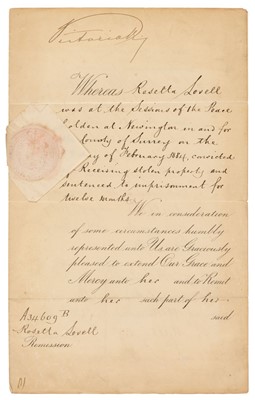 Victoria R
Whereas Rosetta Lovell
was at the Sessions of the Peace
holden at Newington in and for
County of Surrey on the
day of February 1864, convicted
of Receiving stolen property and
sentenced to imprisonment for
twelve months.
We in consideration
of some circumstances humbly
represented unto Us, are Graciously
pleased to extend Our Grace and
Mercy unto her and to Remit
unto her such part of her
said
A34609 B
Rosetta Lovell
Remission.